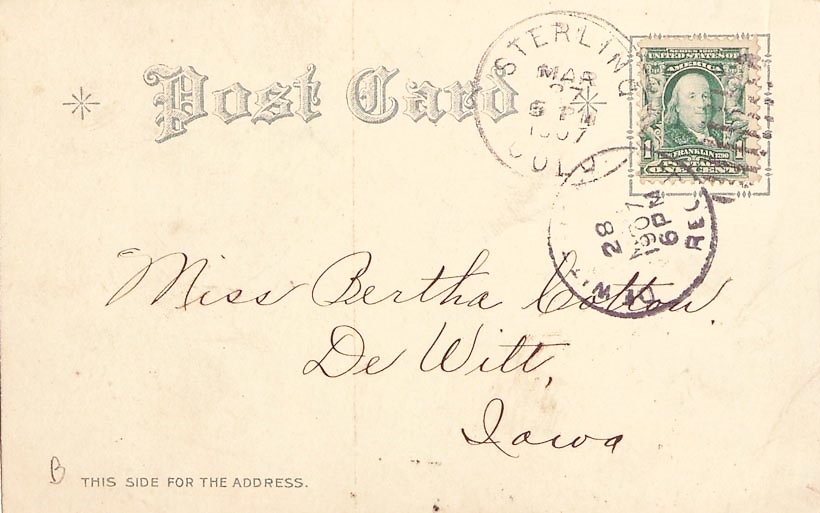 Post Card
STERLING
MAR
27
6 PM
1907
COLO.
SERIES 1902
UNITED STATES OF
AMERICA
1 FRANKLIN 1
ONE CENT
DE WITT
28
1907
6 PM
REC'D
Miss Bertha Cotton
De Witt,
Iowa
B
THIS SIDE FOR THE ADDRESS.